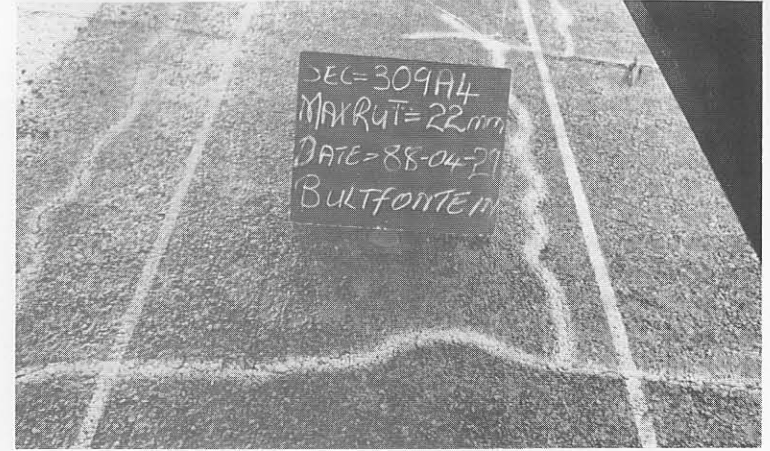 SEC=309A4
MAXRUT=22mm
DATE=88-04-27
BULTFONTEIN